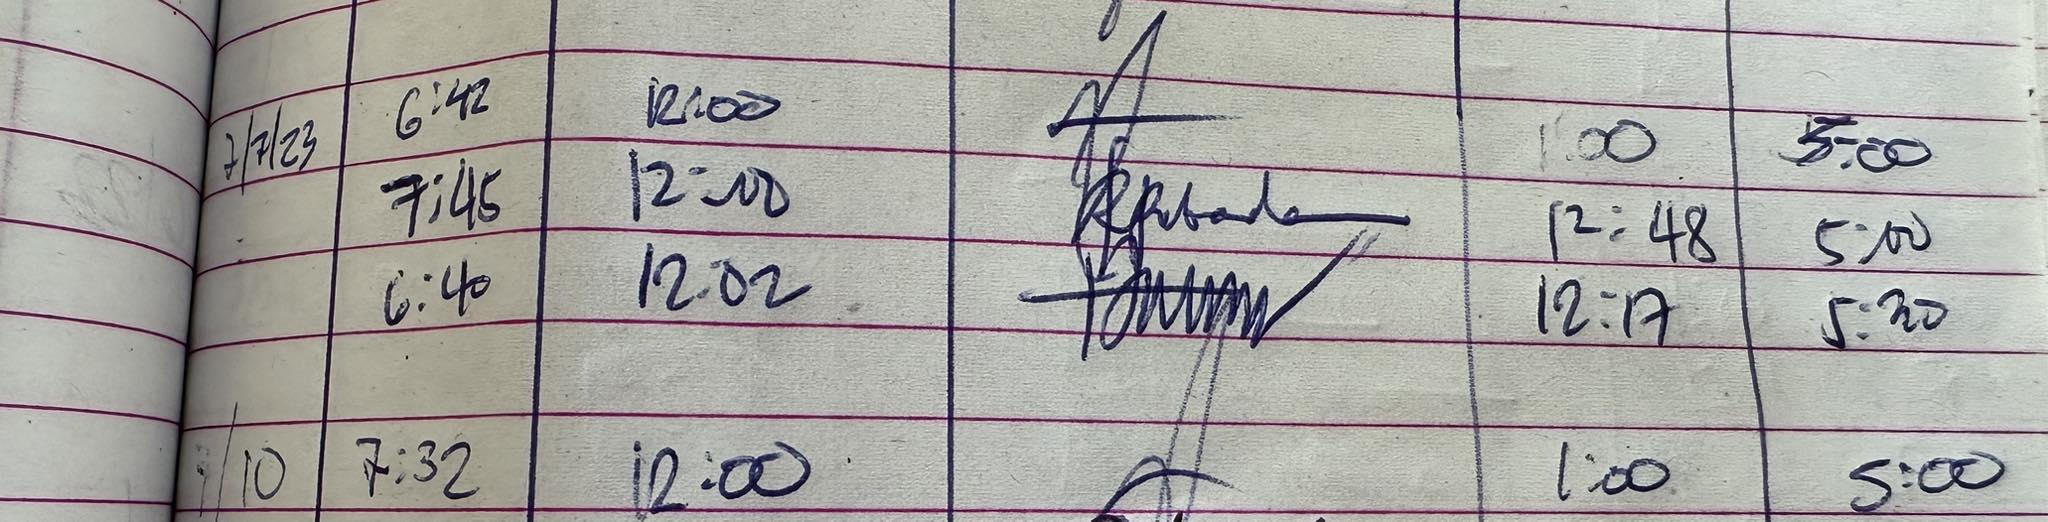 7/7/23 6:42 12:00 1:00 5:00
7:45 12:00 12:48 5:00
6:40 12:02 12:17 5:30
/10 7:32 12:00 1:00 5:00